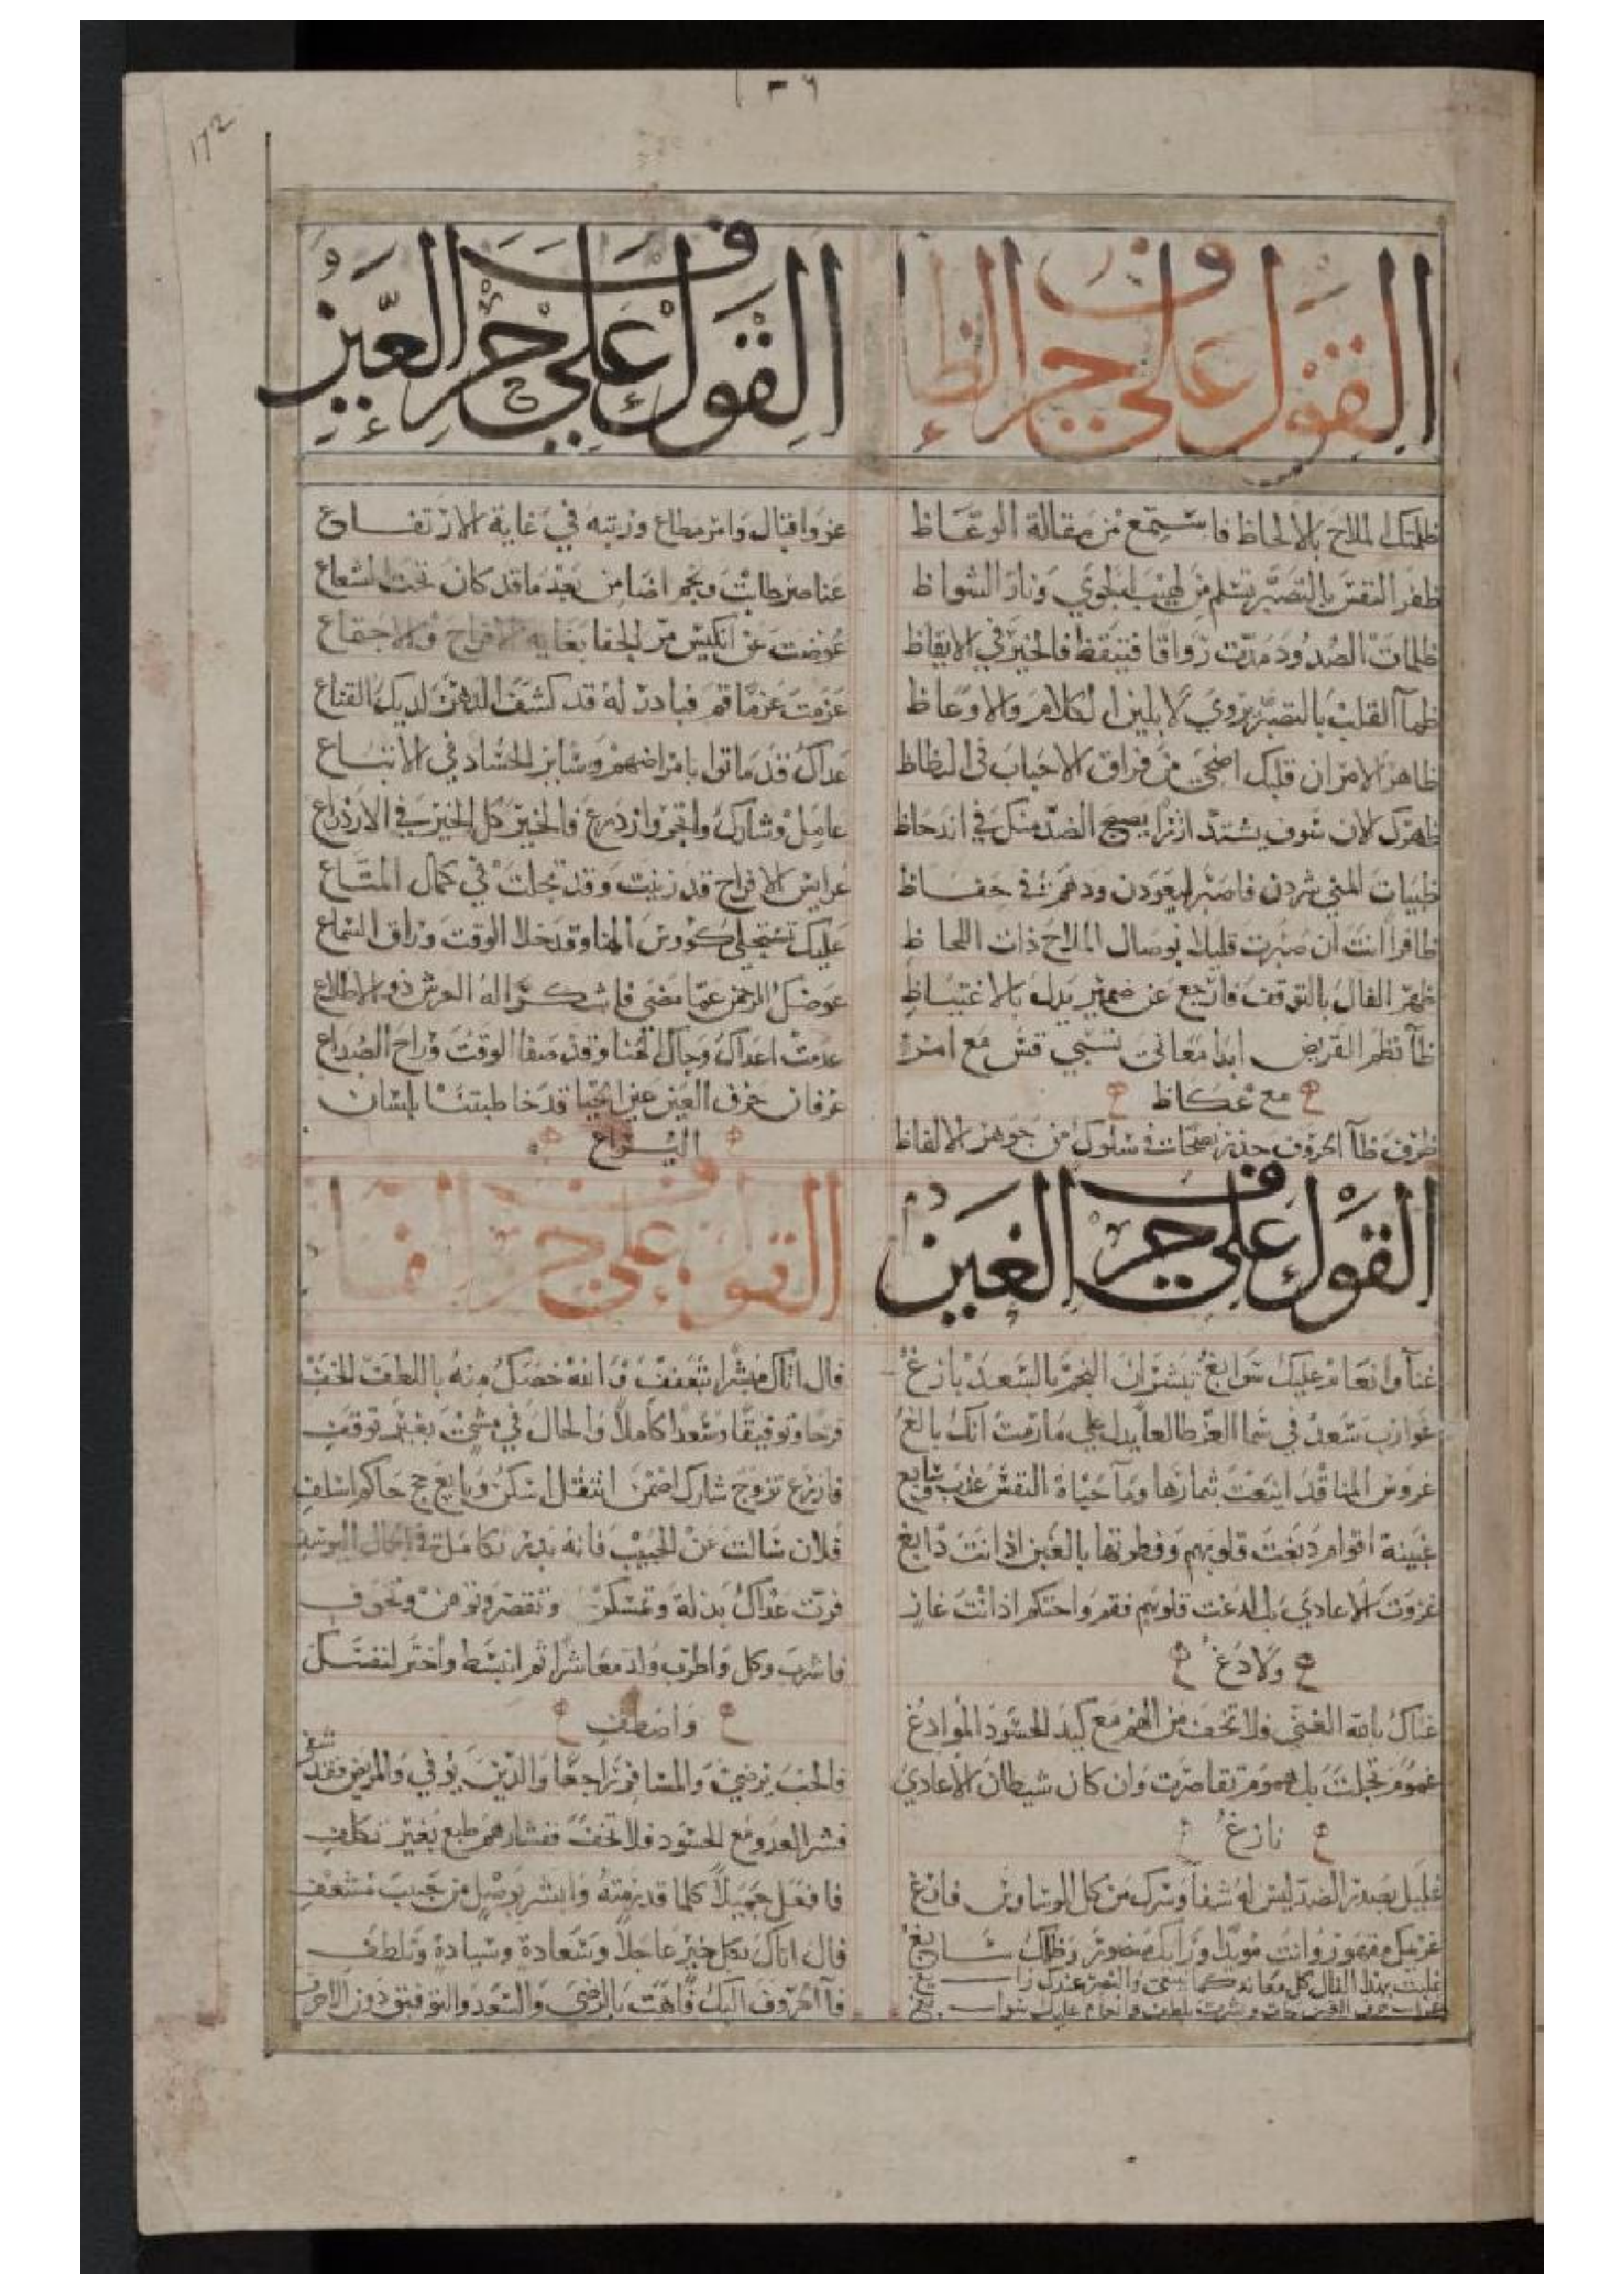 172
القول على حرف الظاء
ظلمتك الملاح بالالحاظ فاستمع من مقالة الوعاظ
ظفر النفس بالتصبر تسلم من لهيب الجوي ونار الشواظ
ظلمات الصدود مدت رواقا فتيقظ فالخير في الايقاظ
ظمآ القلب بالتصبر يروي لا بلين الكلام والاوعاظ
ظاهر الامر ان قلبك اضحي من فراق الاحباب في
ظهرك الان سوف يشتد ازرا يصبح الضد منك في اندحاظ
ظبيات المني شردن فاصبر ليعودن ودهم في حفاظ
ظافرا انت ان صبرت قليلا بوصال الملاح ذات اللحاظ
ظهر الفال بالتوقف فارجع عن ضمير بدل بالاغتياظ
ظآ نظم القريض ابدا معاني تسبي قس مع امرء
مع عكاظ
ظرف ظآ الحروف سلوك من جوهر الالفاظ
القول على حرف العين
عز واقبال وامر مطاع ورتبه في غاية الارتفاع
عناصر طابت ونجم اضا من بعد ما قد كان تحت الشعاع
عوضت عن انكيس من الجفا بغايه الافراح والاجتماع
عزمت عزما قم فبادر له قد كشف الدهر لديك القناع
عداك قد ماتوا بامراضهم وسائر الحساد في
عامل وشارك واتجر وازدرع فالخير كل الخير في الازدراع
عرايس الافراح قد زينت وقد تجلت في كمال المتاع
عليك تستجلي كؤوس الهنا وقد خلا الوقت وراق السماع
عوضك الرحمن عما مضي فاشكر اله العرش ذو الاطلاع
عدمت اعداك وجاك الهنا وقد صفا الوقت وراح الصداع
عرفان حرف العين عين الحيا قد خاطبتنا بلسان
اليراع
القول على حرف الغين
غنآ وانعام عليك سوابغ تبشر ان النجم بالسعد بازغ
غوارب سعد في سما العز طالعا يدل علي ما رمت انك بالغ
غروس المنا قد اينعت بثمارها ومآ حياة النفس عذب وسايغ
غبينة اقوام دبغت قلوبهم وفطرتها بالغبن اذ انت دابغ
غزوت الاعادي بل لدغت قلوبهم فقم واحتكم اذ انت غاز
ولادغ
غناك بالله الغني فلا تخف من الهم مع كيد الحسود الموادغ
غموم تجلت بل هموم تقاصرت وان كان شيطان الاعادي
نازغ
غليل بصدر الضد ليس له شفآ وسرك من كل الوساوس فارغ
غريمك مقهور وانت مويد ورايك منصور وظلك سابغ
القول على حرف الفا
فال اتاك مبشرا بتعفف والله خصك منه باللطف الخفي
فرحا وتوفيقا وسعدا كاملا والحال في مشي بغير توقف
فازرع تزوج شارك اضمن انتقل اسكن وبايع حج حاكم اسلف
فلان سالت عن الحبيب فانه بدر تكامل في الجمال اليوسف
فرت عداك بذلة وتمسكن وتقصر وتوهن وتخوف
فاشرب وكل واطرب ولذ معاشرا ثم انبسط واختر لنفسك
واصطف
فالحب يرضي والمسافر راجعا والدين يوفي والمريض فقد شفي
فشر العدو مع الحسود فلا تخف ففشارهم طبع بغير تكلف
فافعل جميلا كلما قد رمته وابشر بوصل من حبيب مسعف
فال اتاك بكل خير عاجلا وسعادة وسيادة وتلطف
فآ الحروف اليك فاهت بالرضي والسعد والتوفيق دون الاحرف